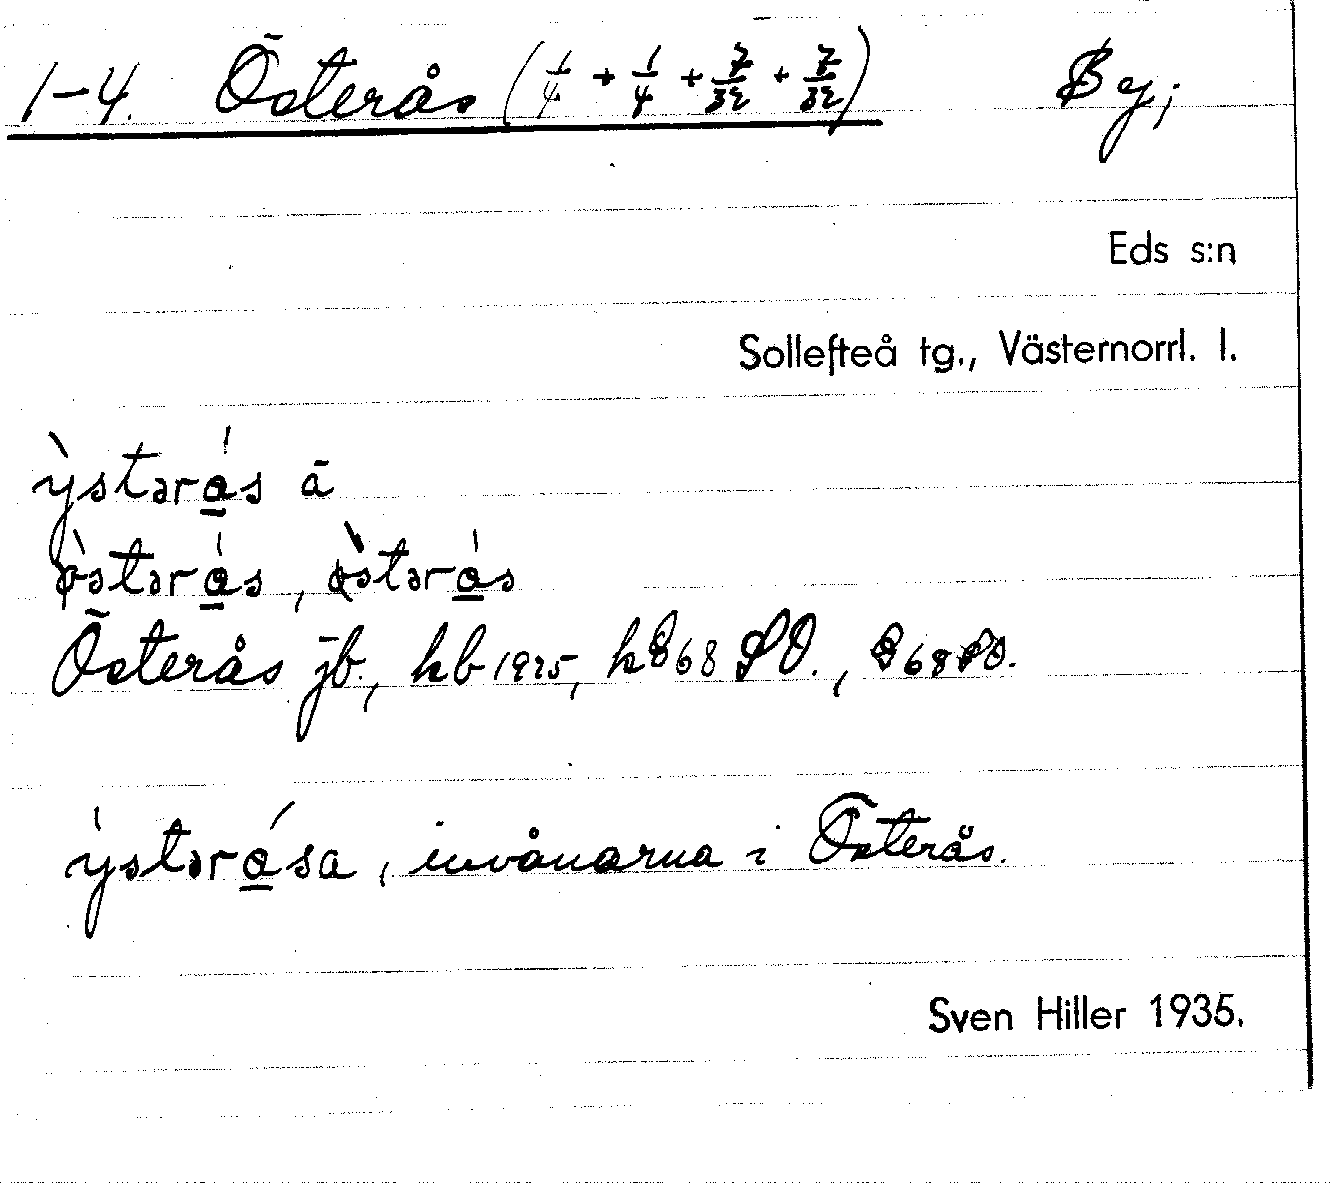 1-4. Österås (1/4 + 1/4 + 7/32 + 7/32) By;
Eds s:n
Sollefteå tg., Västernorrl. l.
ỳstərás ā
ǿ̀stərás, ǿ̀stərás
Österås jb., kb 1925, k 68 SO., 68 SO.
ỳstərása, invånarna i Österås.
Sven Hiller 1935.